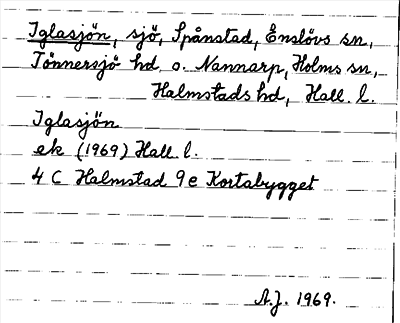 Iglasjön, sjö, Spånstad, Enslövs sn,
Tönnersjö hd o. Nannarp, Holms sn,
Halmstads hd, Hall. l.
Iglasjön
ek (1969) Hall l.
4 C Halmstad 9 e Kortabygget
A.J. 1969.